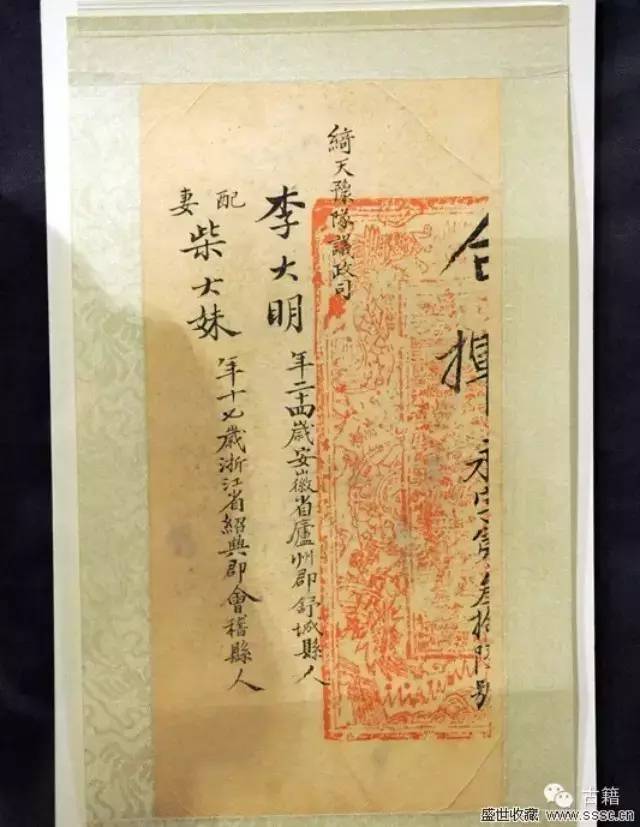 合揮
綺天豫隊議政司
李大明 年二十四歲安徽省廬州郡舒城縣人
配妻 柴大妹 年十七歲浙江省紹興郡會稽縣人
古籍
盛世收藏 www.sssc.cn